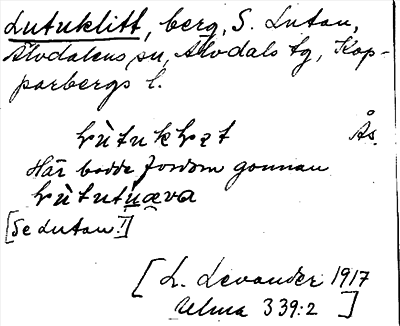 Lutuklitt, berg, S. Lutan,
Älvdalens sn, Älvdals tg, Kop-
parbergs l.
Ås.
Här bodde fordom gonnan
[Se Lutan!]
[L. Levander 1917
Ulma 339:2]